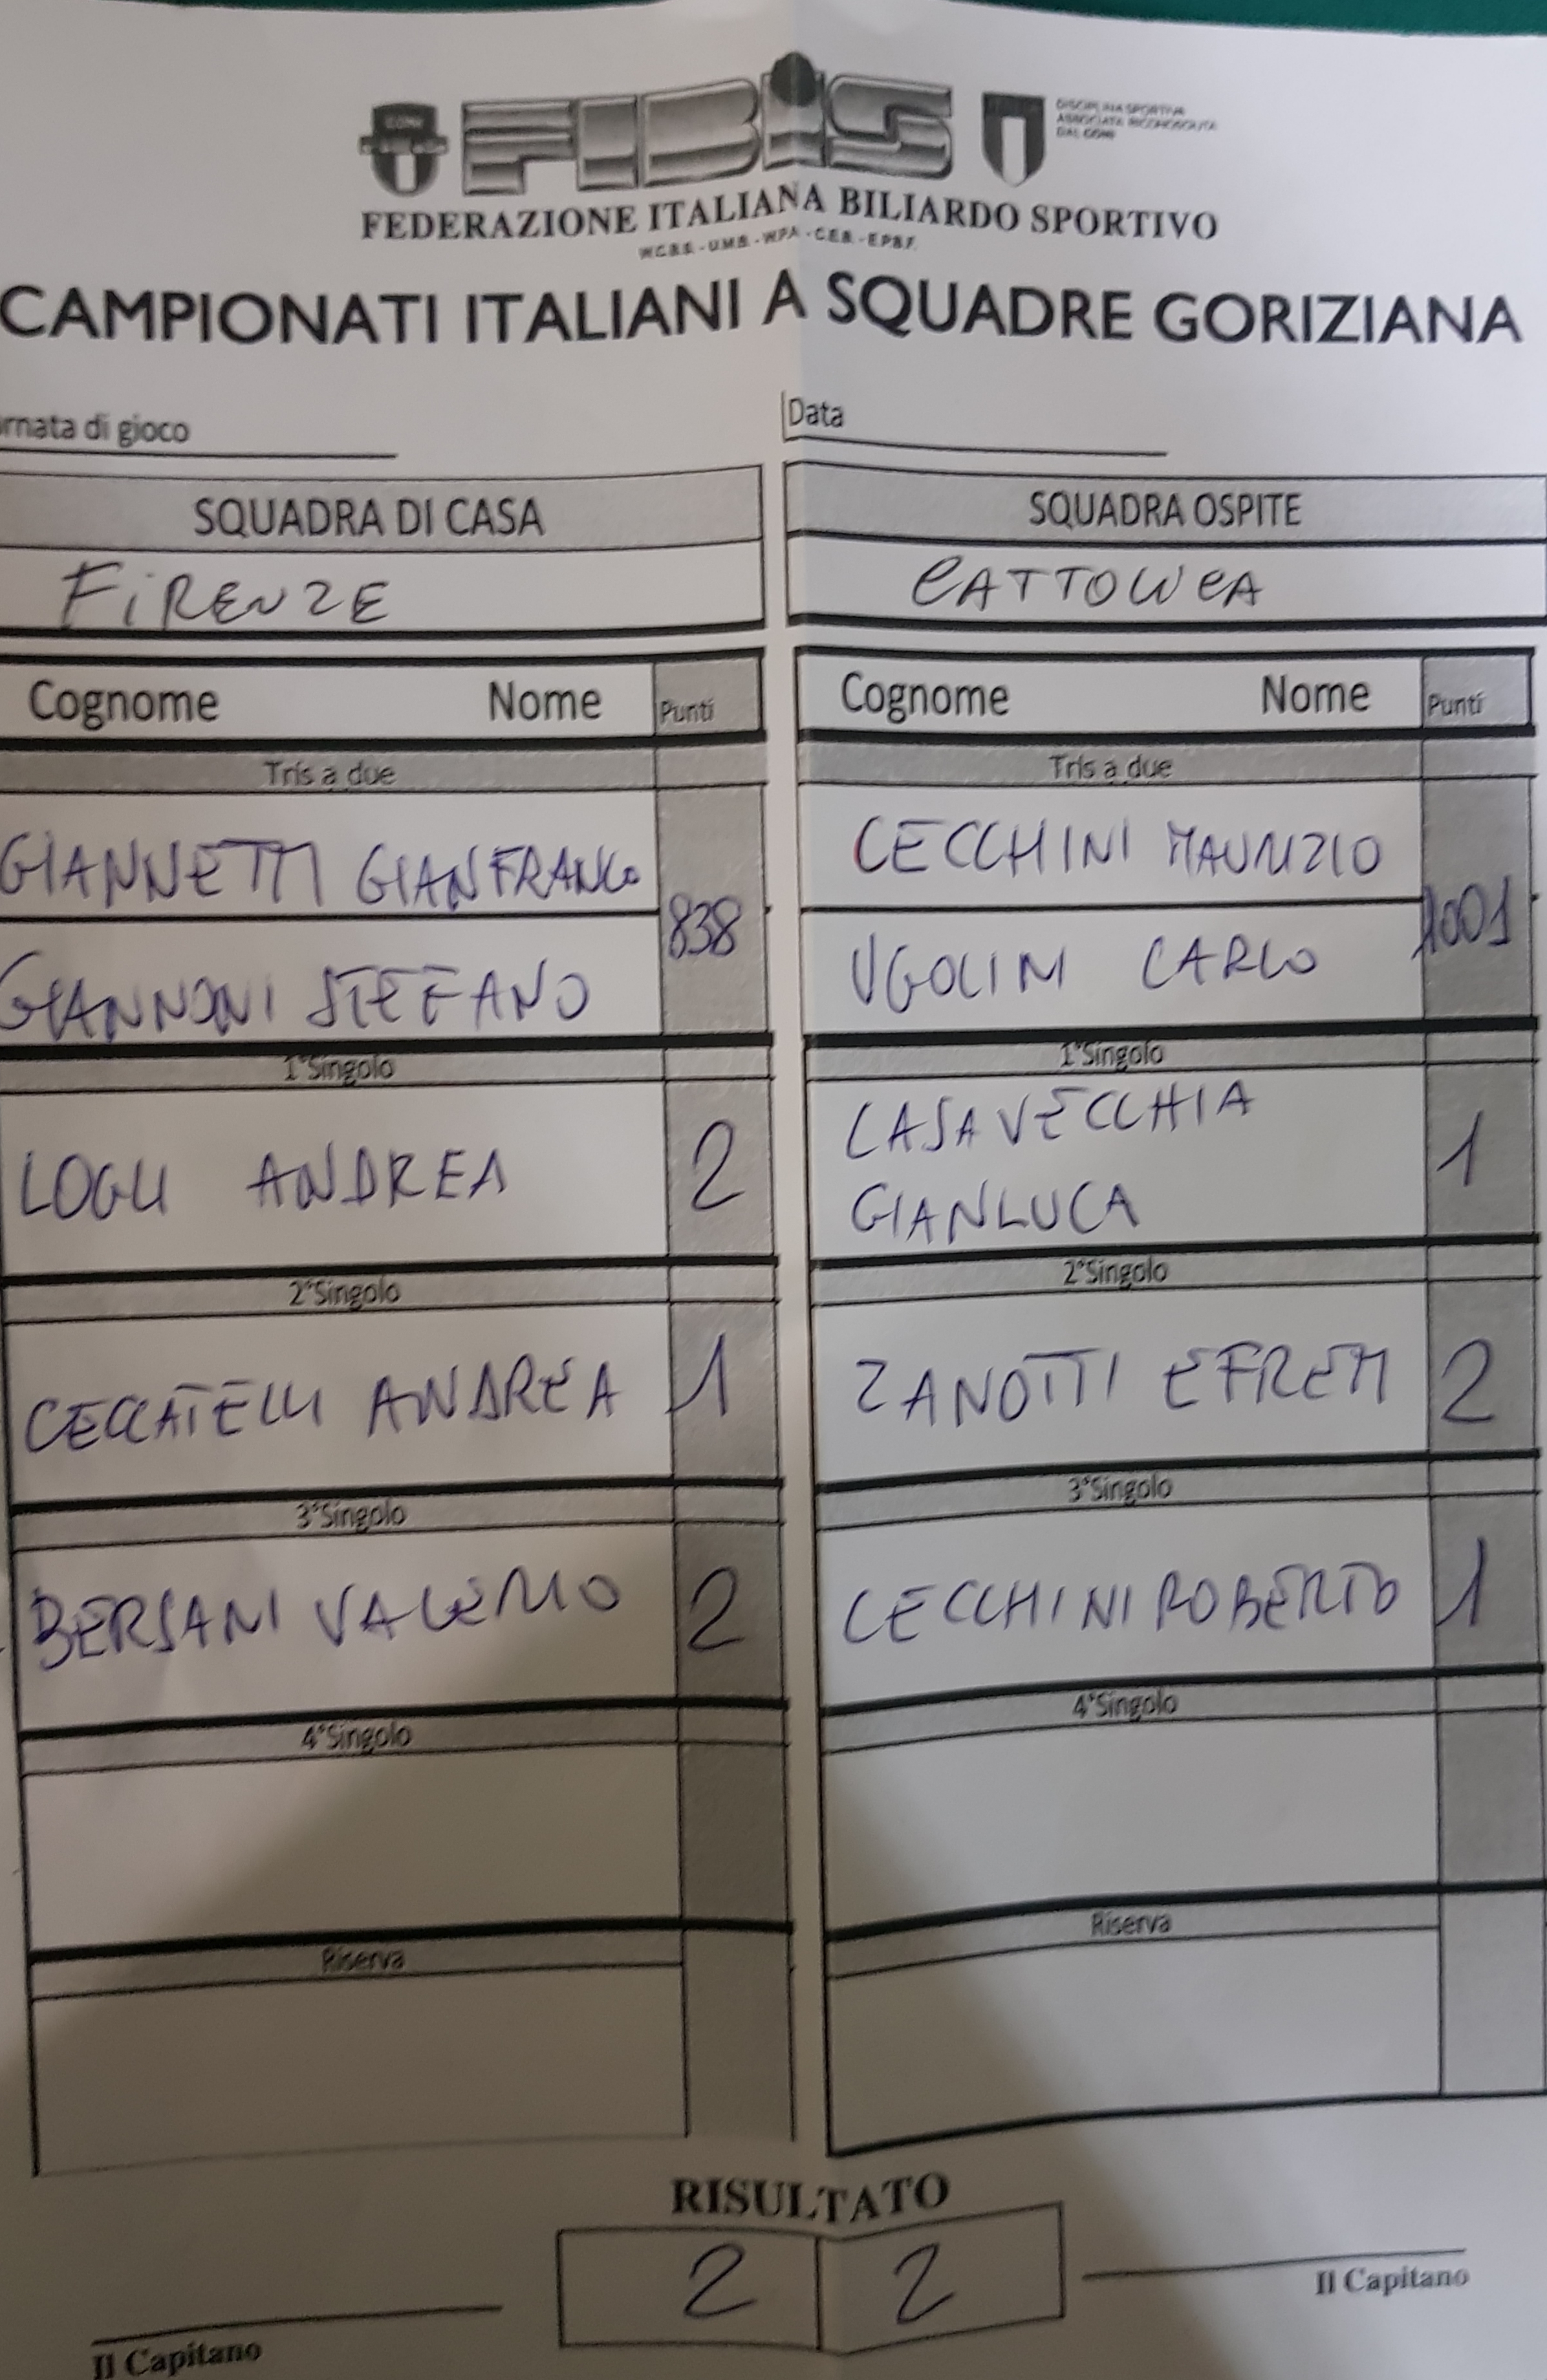 FIBiS
DISCIPLINA SPORTIVA
ASSOCIATA RICONOSCIUTA
DAL CONI
FEDERAZIONE ITALIANA BILIARDO SPORTIVO
W.C.B.S. - U.M.B. - W.P.A. - C.E.B. - E.P.B.F.
CAMPIONATI ITALIANI A SQUADRE GORIZIANA
rnata di gioco
Data
SQUADRA DI CASA
SQUADRA OSPITE
FiRENZE
CATTOLICA
Cognome Nome Punti
Cognome Nome Punti
Tris a due
Tris a due
GIANNETTI GIANFRANCO
CECCHINI MAURIZIO
838
1001
GIANNONI STEFANO
UGOLINI CARLO
1°Singolo
1°Singolo
LOGLI ANDREA 2
CASAVECCHIA
GIANLUCA 1
2°Singolo
2°Singolo
CECCATELLI ANDREA 1
ZANOTTI EFREM 2
3°Singolo
3°Singolo
BERSANI VALERIO 2
CECCHINI ROBERTO 1
4°Singolo
4°Singolo
Riserva
Riserva
RISULTATO
2 2
Il Capitano
Il Capitano